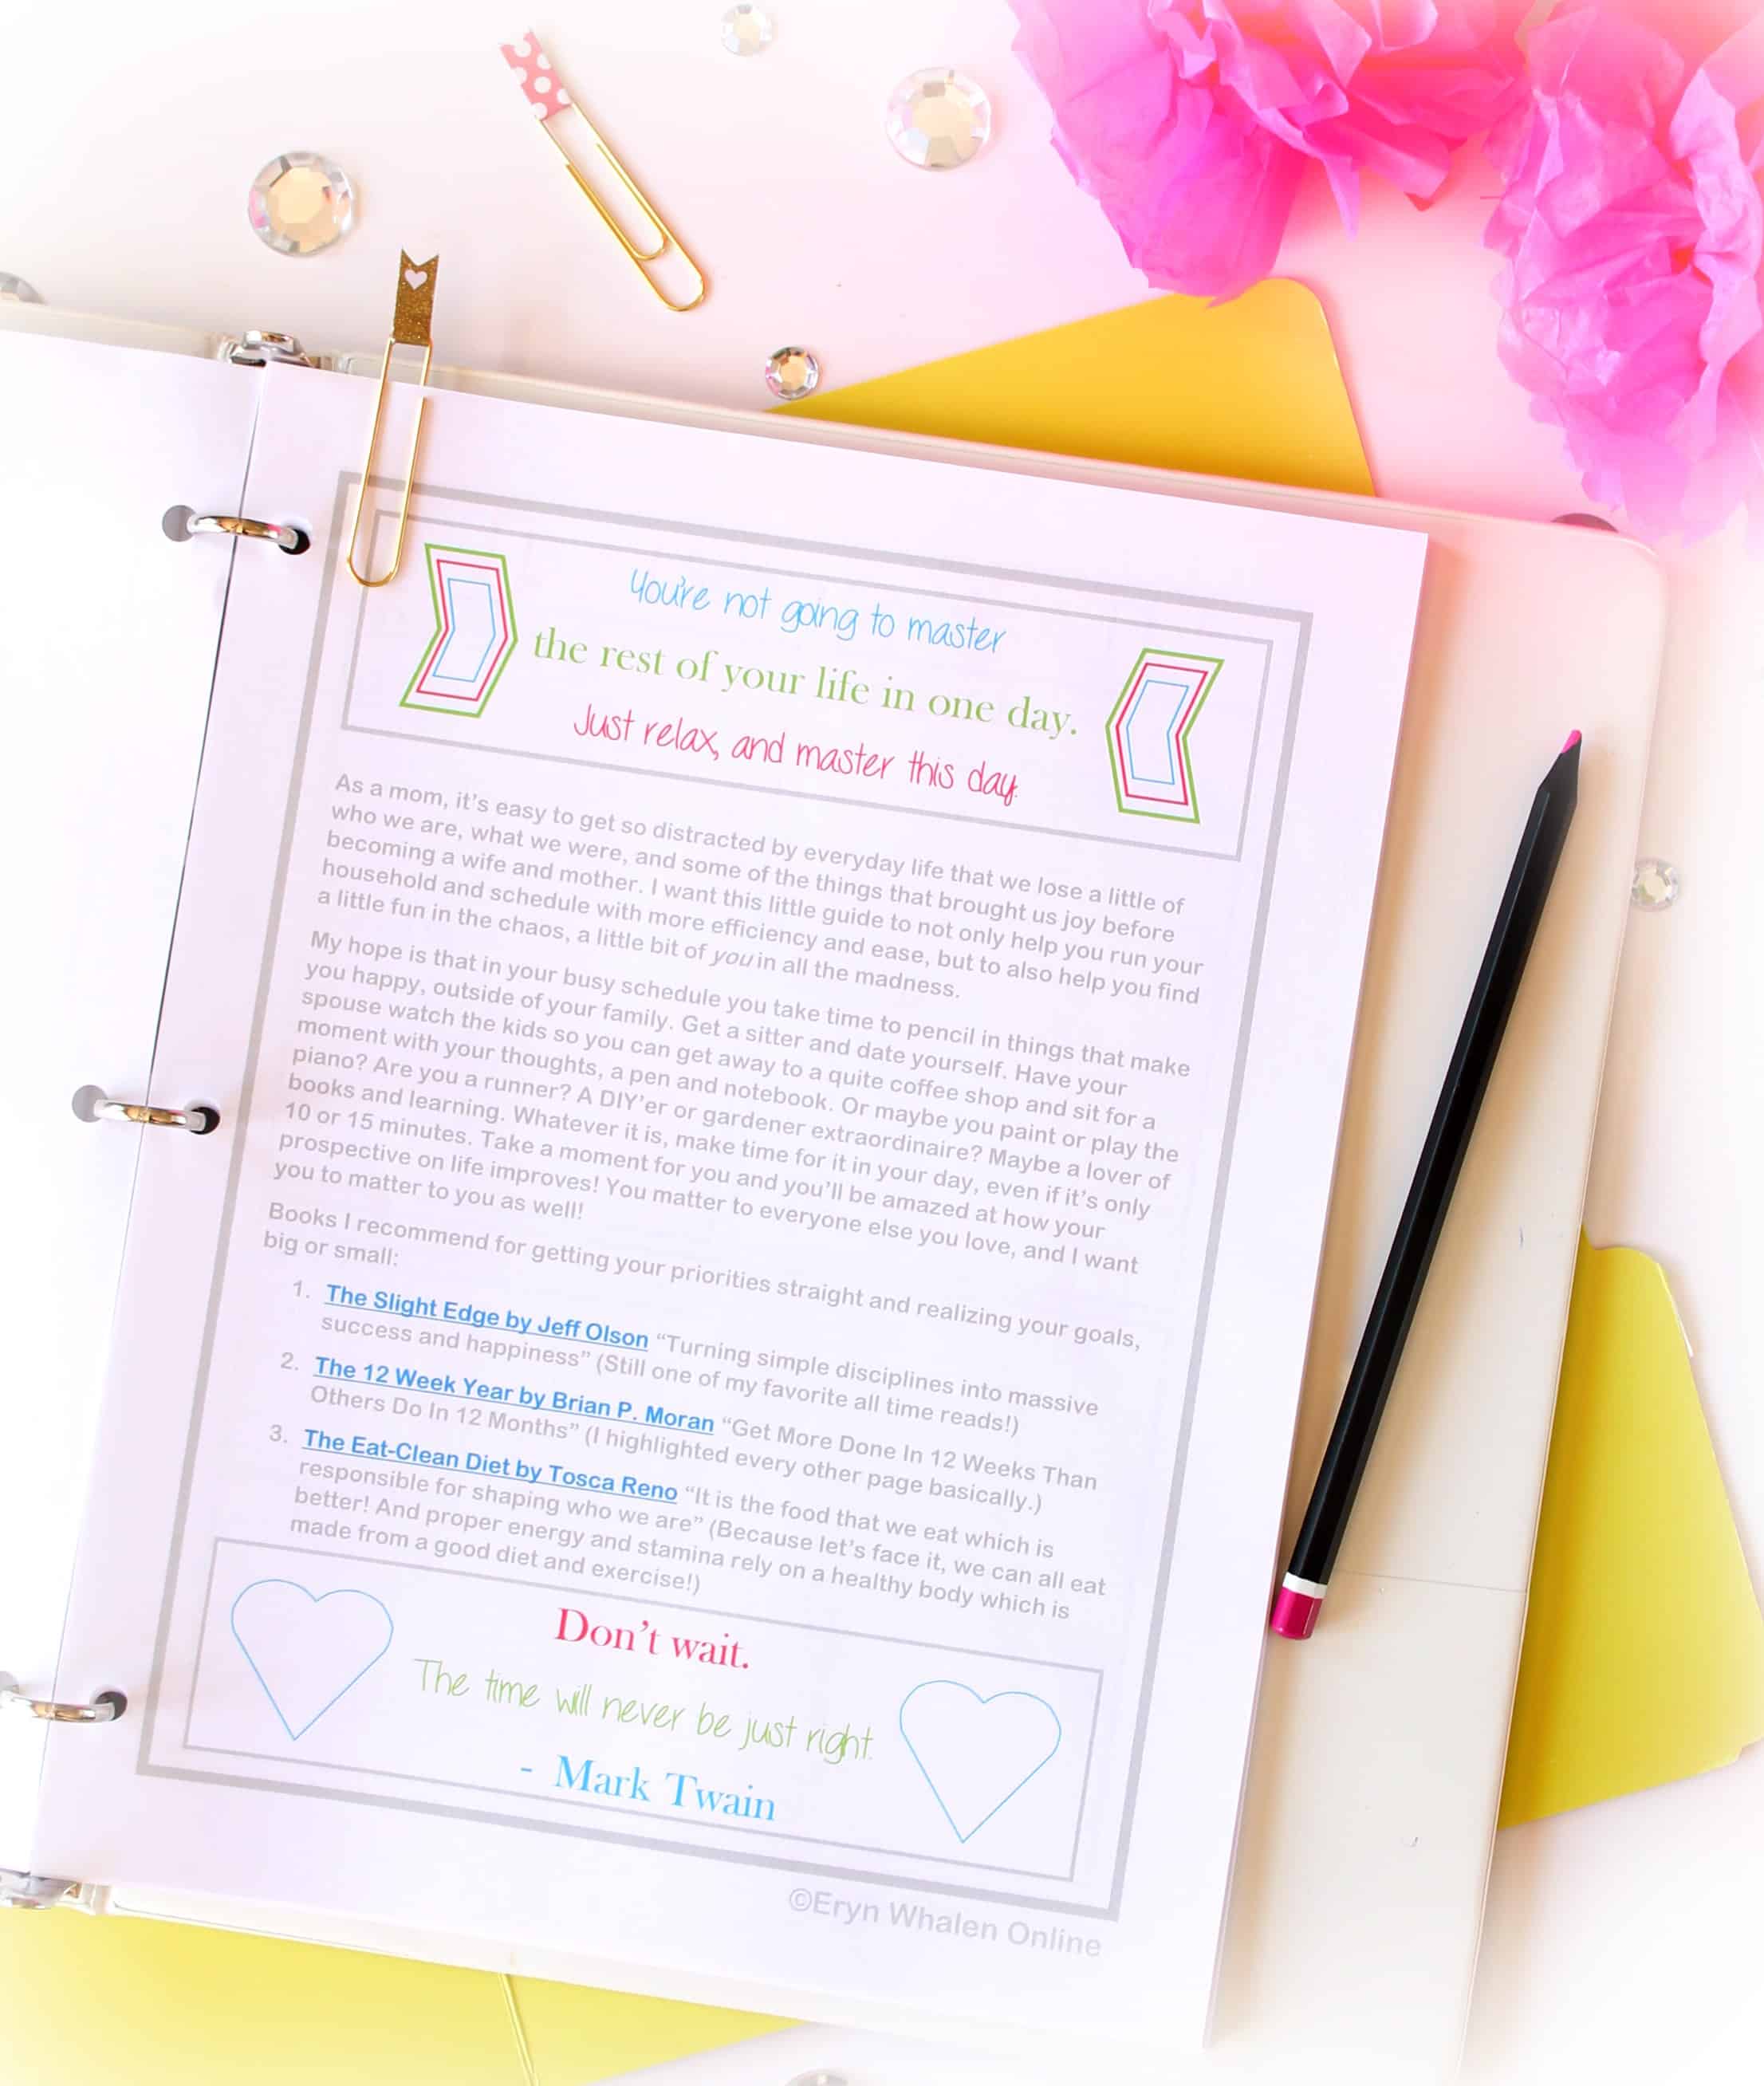 You're not going to master
the rest of your life in one day.
Just relax, and master this day.
As a mom, it's easy to get so distracted by everyday life that we lose a little of
who we are, what we were, and some of the things that brought us joy before
becoming a wife and mother. I want this little guide to not only help you run your
household and schedule with more efficiency and ease, but to also help you find
a little fun in the chaos, a little bit of you in all the madness.
My hope is that in your busy schedule you take time to pencil in things that make
you happy, outside of your family. Get a sitter and date yourself. Have your
spouse watch the kids so you can get away to a quite coffee shop and sit for a
moment with your thoughts, a pen and notebook. Or maybe you paint or play the
piano? Are you a runner? A DIY'er or gardener extraordinaire? Maybe a lover of
books and learning. Whatever it is, make time for it in your day, even if it's only
10 or 15 minutes. Take a moment for you and you'll be amazed at how your
prospective on life improves! You matter to everyone else you love, and I want
you to matter to you as well!
Books I recommend for getting your priorities straight and realizing your goals,
big or small:
1. The Slight Edge by Jeff Olson "Turning simple disciplines into massive
success and happiness" (Still one of my favorite all time reads!)
2. The 12 Week Year by Brian P. Moran "Get More Done In 12 Weeks Than
Others Do In 12 Months" (I highlighted every other page basically.)
3. The Eat-Clean Diet by Tosca Reno "It is the food that we eat which is
responsible for shaping who we are" (Because let's face it, we can all eat
better! And proper energy and stamina rely on a healthy body which is
made from a good diet and exercise!)
Don't wait.
The time will never be just right.
- Mark Twain
©Eryn Whalen Online